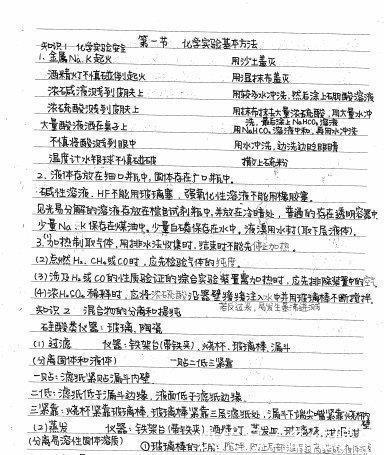 第一节 化学实验基本方法
知识1 化学实验安全
1. 金属Na、K起火 用沙土盖灭
酒精灯不慎碰倒起火 用湿抹布盖灭
浓碱液溅到皮肤上 用较多水冲洗,然后涂上石硼酸溶液
浓硫酸溅到皮肤上 用抹布抹去大量浓硫酸,用大量水冲洗,最后涂上NaHCO₃溶液
大量酸液洒在桌子上 用NaHCO₃溶液中和,再用水冲洗
不慎将酸溅到眼中 用水冲洗,边洗边眨眼睛
温度计水银球不慎碰破 撒上硫粉
2. 液体存放在细口瓶中,固体存在广口瓶中。
碱性溶液、HF不能用玻璃塞,强氧化性溶液不能用橡胶塞。
见光易分解的溶液存放在棕色试剂瓶中,并放在冷暗处,普通的存在透明容器中
少量Na、K保存在煤油中。少量白磷保存在水中。液溴用水封(取下层液体)。
3.(1)加热制取气体,用排水法收集时,结束时不能先停止加热。
(2)点燃H₂、CH₄或CO时,应先检验气体的纯度
(3)涉及H₂或CO的性质验证的综合实验装置需加热时,应先排除装置中的空气
(4)浓H₂SO₄稀释时,应将浓硫酸沿器壁慢慢注入水中并用玻璃棒不断搅拌
知识2 混合物的分离和提纯
硅酸盐仪器:玻璃、陶瓷
(1)过滤 仪器:铁架台(带铁夹)、烧杯、玻璃棒、漏斗
(分离固体和液体) 一贴二低三紧靠
一贴:滤纸紧贴漏斗内壁
二低:滤纸低于漏斗边缘,液面低于滤纸边缘
三紧靠:烧杯紧靠玻璃棒,玻璃棒紧靠三层滤纸处,漏斗下端尖嘴紧靠烧杯内壁
(2)蒸发 仪器:铁架台(带铁夹)、酒精灯、蒸发皿、玻璃棒、
(分离易溶性固体溶质) ①玻璃棒的作用:搅拌,防止局部